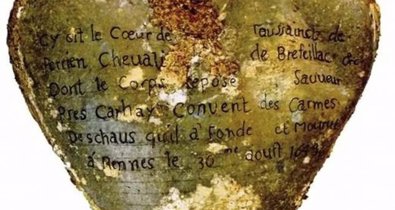 Cy git le Cœur de Toussainct de
Perrien Chevali de Brefeillac
Dont le Corps Repose Sauveur
Pres Carhay Convent des Carmes
Deschaus quil a Fondé et Mourut
á Rennes le 30me aoust